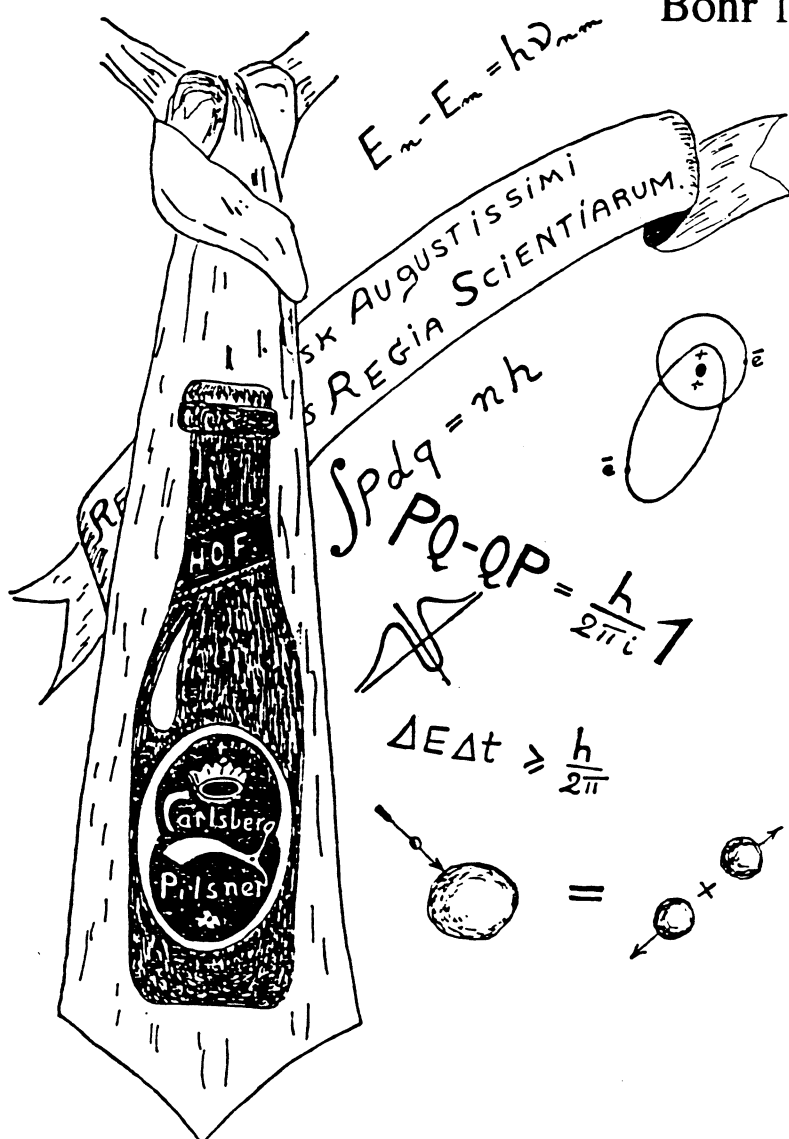 Bohr 1
E_n - E_m = hν_nm
SK AUGUSTISSIMI
S REGIA SCIENTIARUM.
RE
∫pdq = nh
PQ-QP = h/2πi 1
H.O.F.
+
+
ē
ē
ΔEΔt ≥ h/2π
Carlsberg
Pilsner
= +